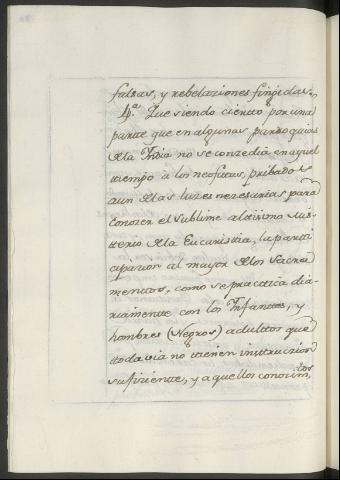 falsas, y rebelaziones fingidas.
4.ª Que siendo cierto por una
parte que en algunas parroquias
de la India no se conzedia en aquel
tiempo a los neofitos, pribados
aun de las luzes nezesarias para
conozer el sublime altisimo Mis-
terio de la Eucaristia, la parti
cipazion al mayor de los Sacra
mentos, como se practica dia-
riamente con los Infantes, y
hombres (Negros) adultos que
todavia no tienen instruccion
sufiziente, y aquellos conocim.tos